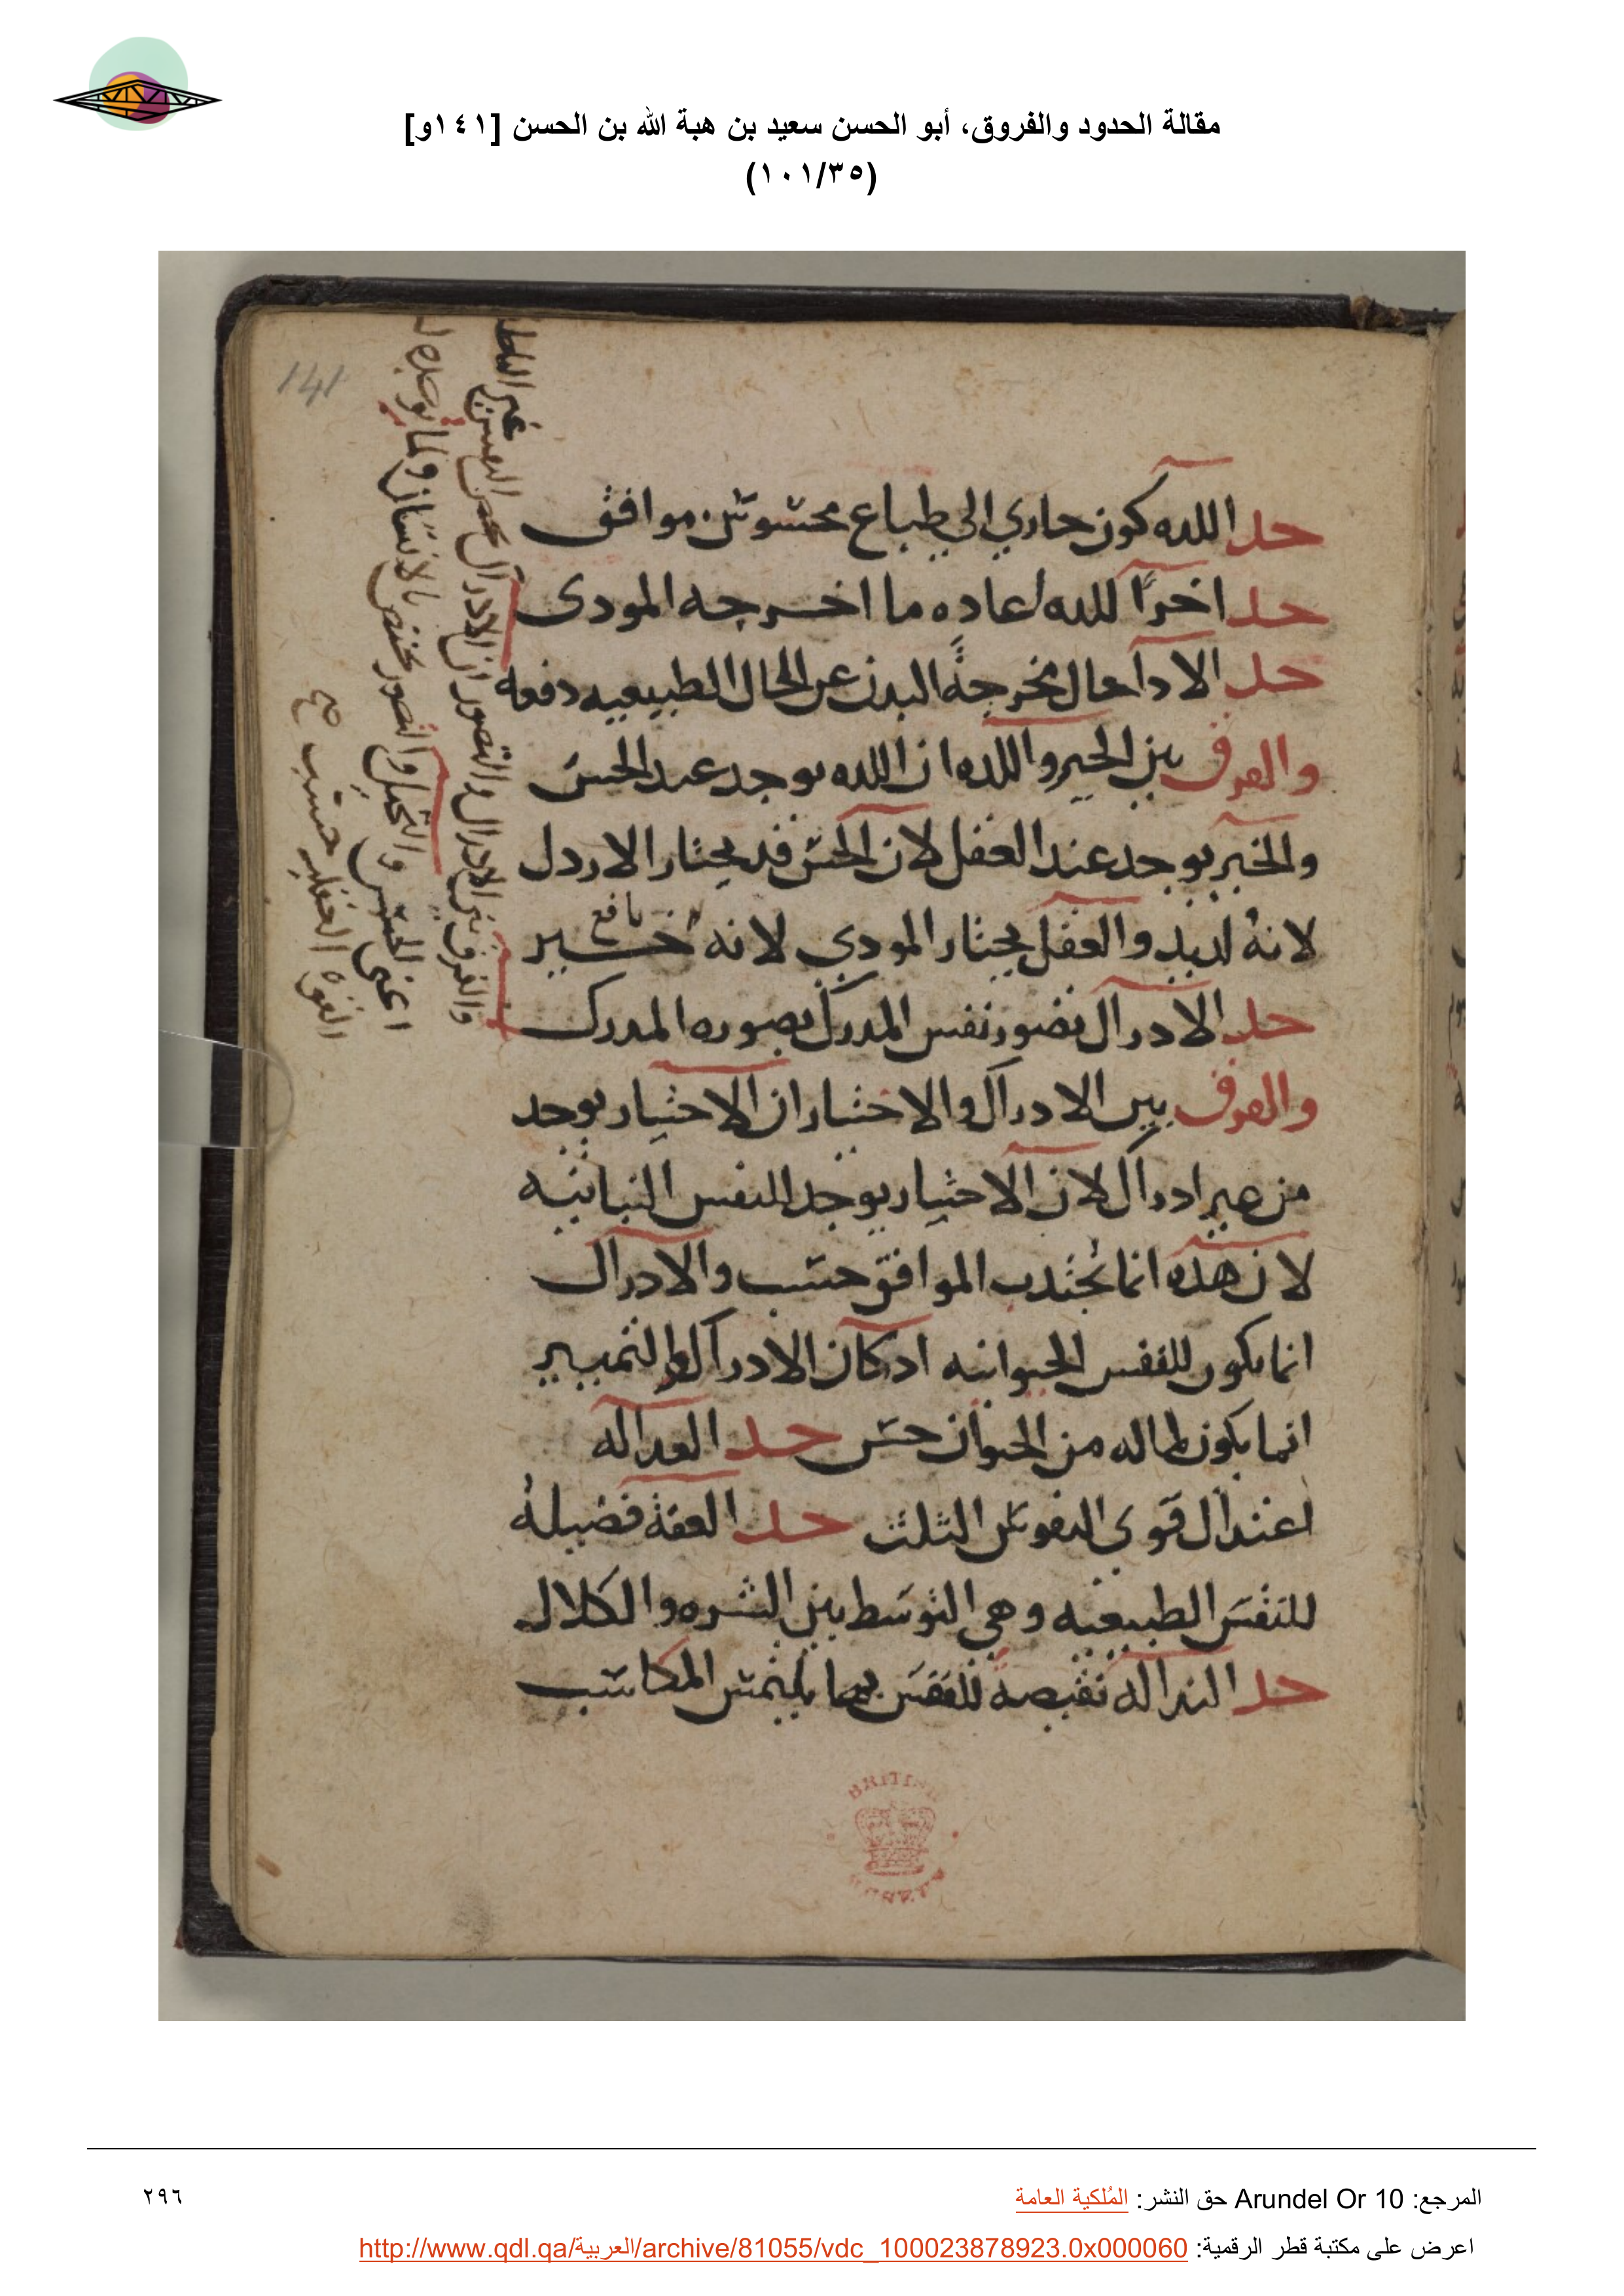 مقالة الحدود والفروق، أبو الحسن سعيد بن هبة الله بن الحسن [١٤١و]
(١٠١/٣٥)
141
حد اللده كون جاري الي طباع محسوس موافق
حد اخرًا للده اعاده ما اخرجه المودى
حد الادا حال مخرجةً البدن عن الحال الطبيعيه دفعه
والفرق بين الخير واللده ان اللده يوجد عند الحس
والخير يوجد عند العقل لان الحس قد يختار الاردل
لانه لديد والعقل يختار المودي لانه خير
نافع
حد الادراك تصور نفس المدرك بصوره المدرك
والفرق بين الادراك والاختيار ان الاختيار يوجد
من غير ادراك لان الاختيار يوجد للنفس النباتيه
لان هده انما تجتدب الموافق حسب والادراك
انما يكون للنفس الحيوانيه اد كان الادراك والتمييز
انما يكون لما له من الحيوان حس حد العداله
اعتدال قوي النفوس الثلث حد العفة فضيلة
للنفس الطبيعيه وهي التوسط بين الشره والكلال
حد الندالة نقيصة للنفس بها يلتمس المكاسب
والفرق بين الادراك والتصور ان الادراك
والتخيل والتصور يختص بالانسان
اعني الحس
القوه العقليه حسب صح
BRITISH
المرجع: Arundel Or 10 حق النشر: المُلكية العامة
٢٩٦
اعرض على مكتبة قطر الرقمية: http://www.qdl.qa/العربية/archive/81055/vdc_100023878923.0x000060